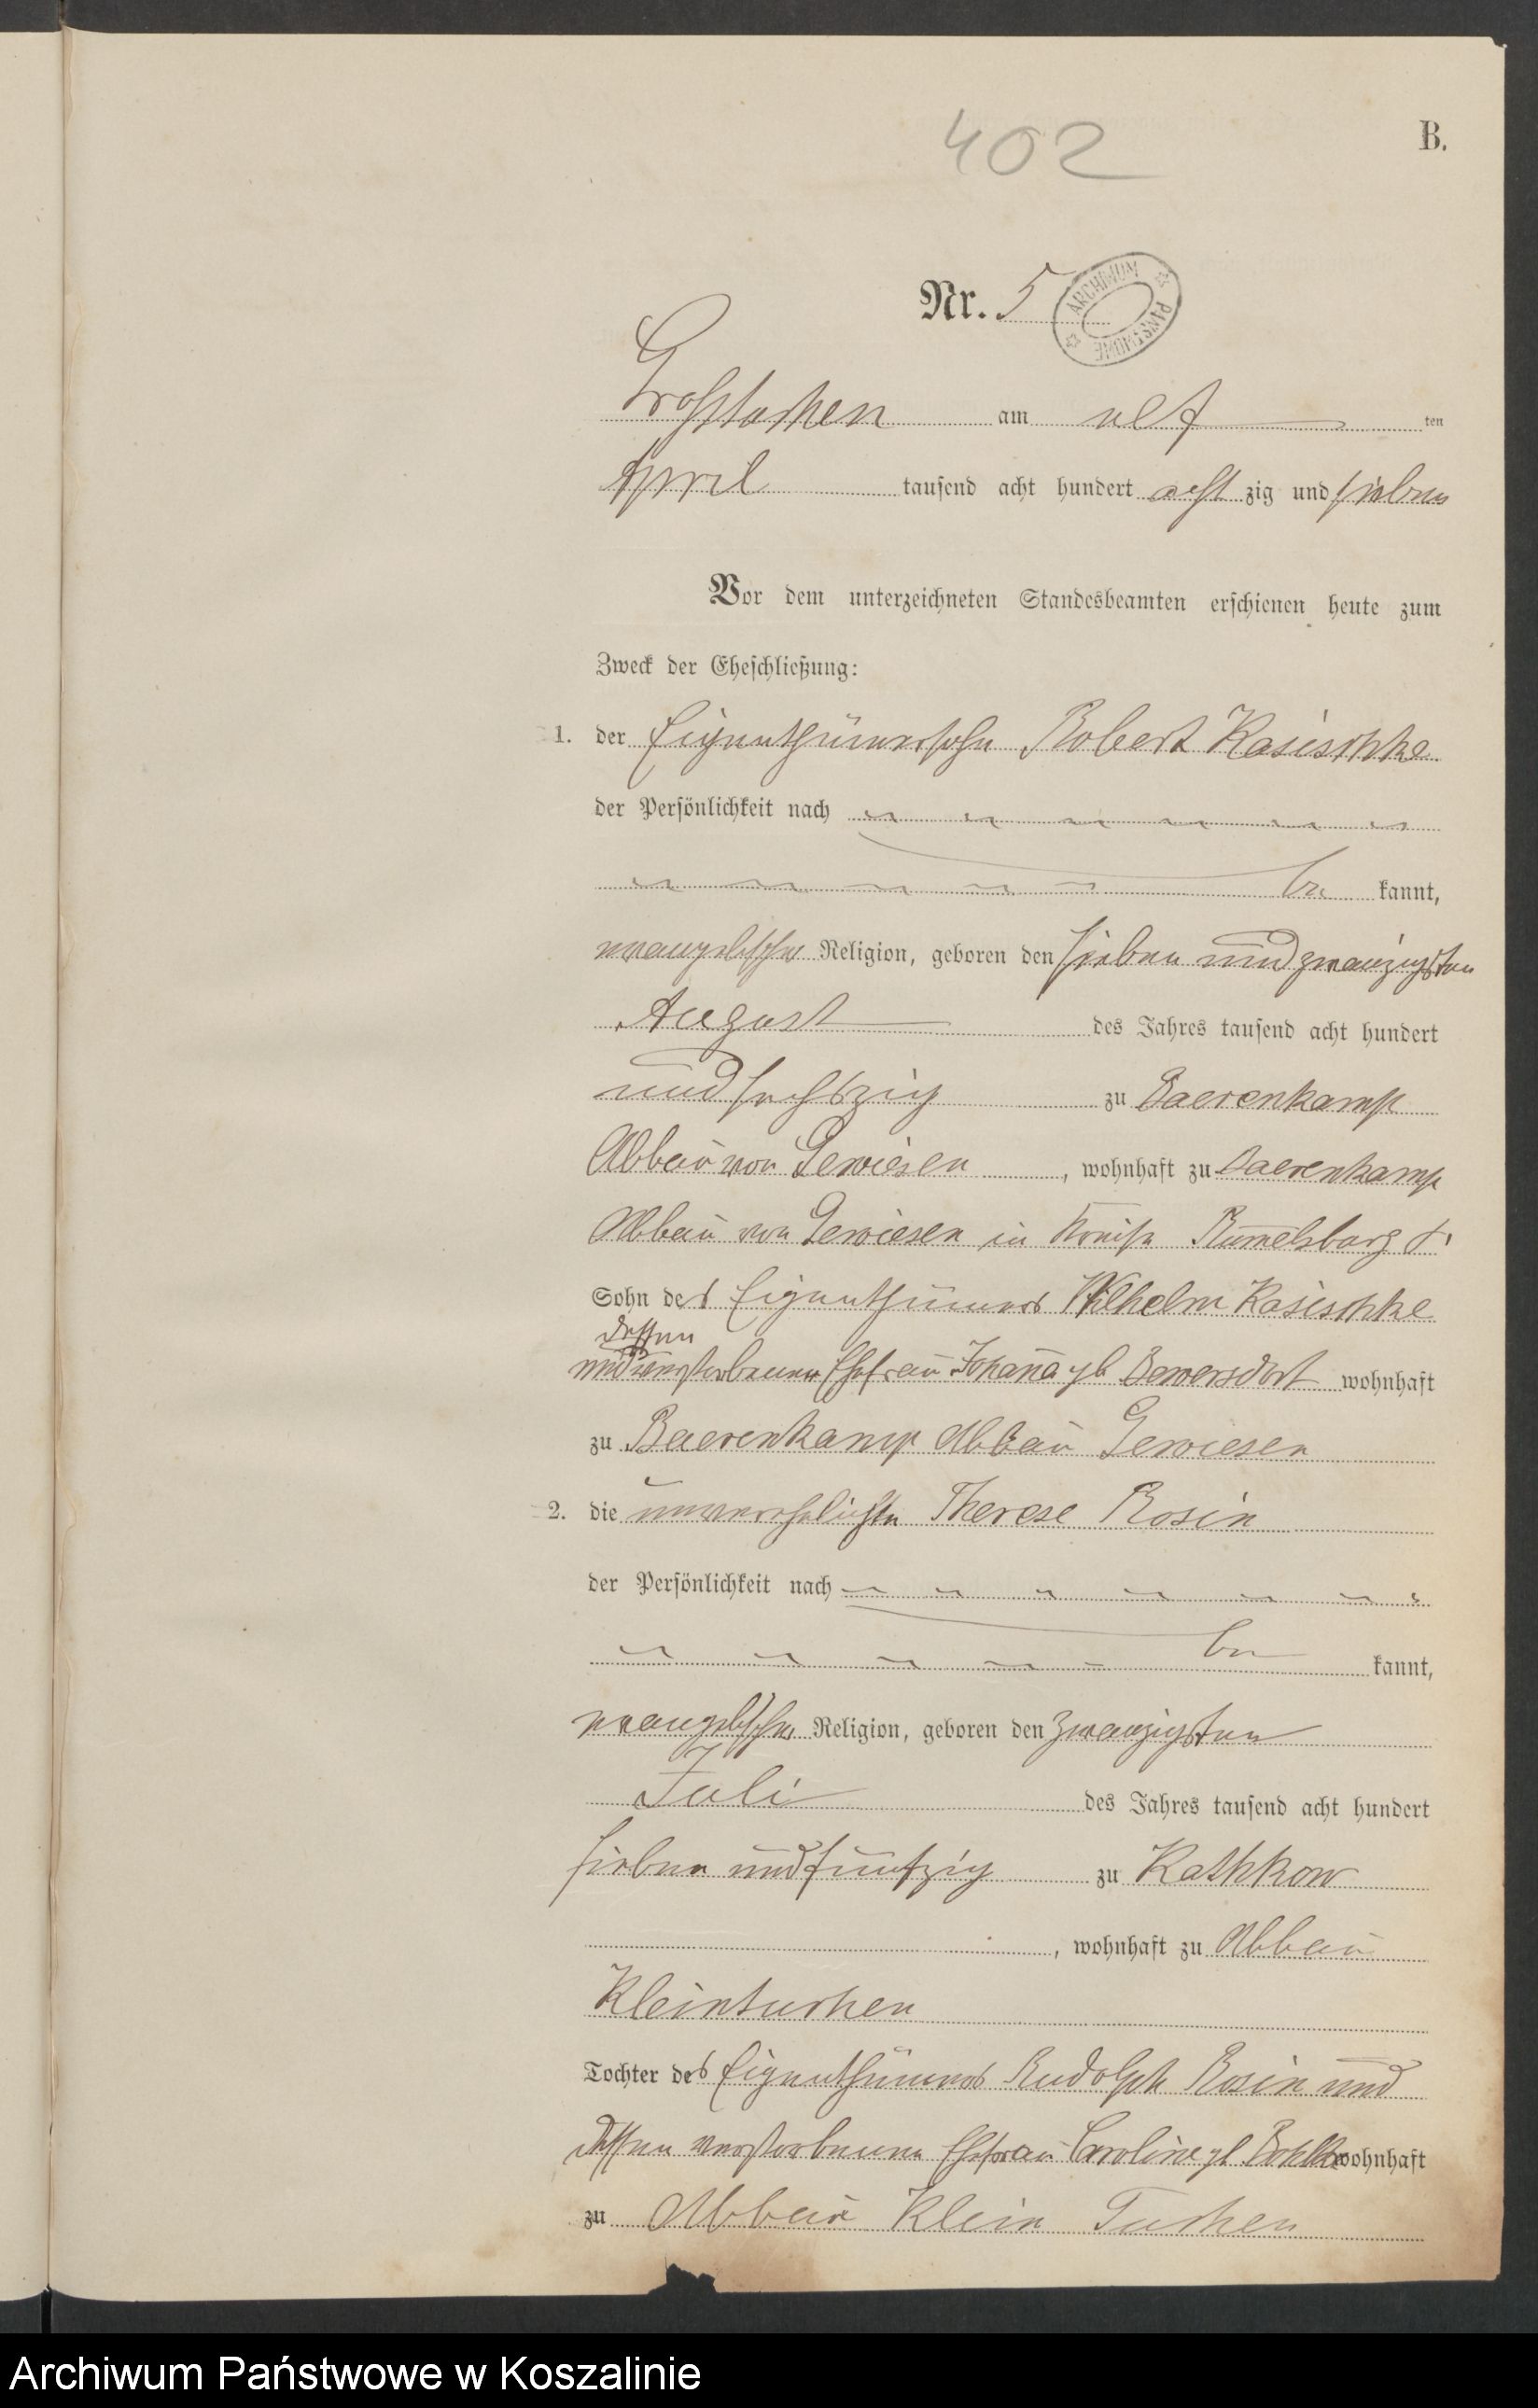 402
B.
Nr. 5
ARCHIWUM PAŃSTWOWE
Großtuchen am elf ten
April tausend acht hundert acht zig und sieben
Vor dem unterzeichneten Standesbeamten erschienen heute zum
Zweck der Eheschließung:
1. der Eigenthümersohn Robert Kasischke
der Persönlichkeit nach
be kannt,
evangelischer Religion, geboren den sieben und zwanzigsten
August des Jahres tausend acht hundert
und sechszig zu Baerenkamp
Abbau von Gewiesen, wohnhaft zu Baerenkamp
Abbau von Gewiesen in Kreise Rummelsburg
Sohn des Eigenthümers Wilhelm Kasischke
dessen
und verstorbenen Ehefrau Johanna gb Bewersdorf wohnhaft
zu Baerenkamp Abbau Gewiesen
2. die unverehelichte Therese Rosin
der Persönlichkeit nach
be kannt,
evangelischer Religion, geboren den zwanzigsten
Juli des Jahres tausend acht hundert
sieben und fünfzig zu Kathkow
, wohnhaft zu Abbau
Kleintuchen
Tochter des Eigenthümers Rudolph Rosin und
dessen verstorbenen Ehefrau Caroline gb wohnhaft
zu Abbau Klein Tuchen
Archiwum Państwowe w Koszalinie